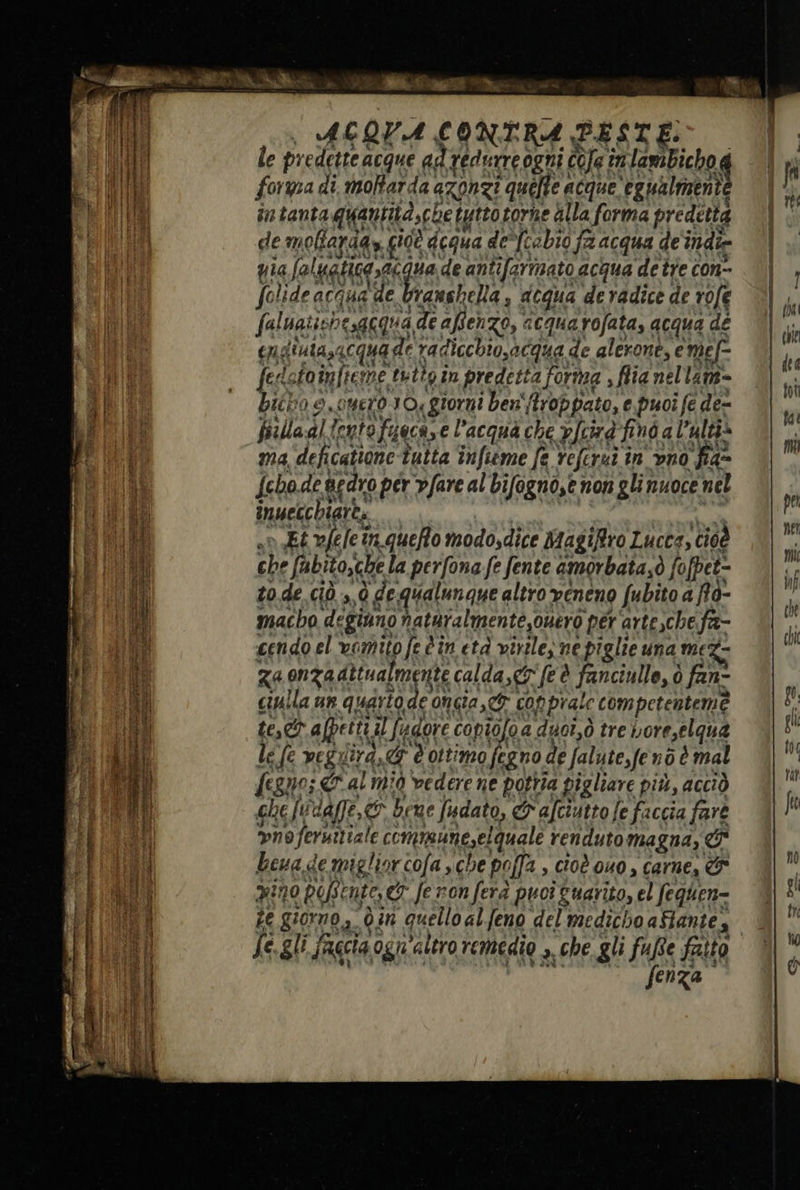 ACQVA CONTRA PESTE.
le predette acque ad redurre ogni cosa in lambicho à
forma di mostarda azonzi queste acque egualmente
in tanta quantità, che tutto torne alla forma predetta
de mostarda, cioè acqua de scabio sa acqua de indi-
uia saluatica, acqua de antifarmato acqua de tre con-
solide acqua de branshella, acqua de radice de rose
saluatiche, acqua de assenzo, acqua rosata, acqua de
endiuia, acqua de radicchio, acqua de alexone, e mes-
sedato insieme tutto in predetta forma, stia nel lam-
bicho 9. ouero 10. giorni ben' stroppato, e puoi se de-
stilla al lento fuoco, e l'acqua che vscirà fino a l'vlti-
ma, deficatione tutta insieme se reserui in vno fia-
scho de vedro per vsare al bisogno, e non gli nuoce nel
inuecchiare.
Et vsese in questo modo, dice Magistro Lucca, cioè
che subito, che la persona se sente amorbata, ò sospet-
to de ciò, ò de qualunque altro veneno subito a sto-
macho degiuno naturalmente, ouero per arte, che fa-
cendo el vomito se è in età virile, ne piglie una mez-
za onza attualmente calda, & se è fanciullo, ò fan-
ciulla un quarto de oncia, & copprale competentemē
te, & aspetti il sudore copioso a duoi, ò tre hore, elqua
le se veguirà, & è ottimo segno de salute, se nō è mal
segno; & al mio vedere ne potria pigliare più, acciò
che sudasse, & bene sudato, & asciutto se faccia fare
vno seruitiale commune, elquale renduto magna, &
beua de miglior cosa, che possa, cioè ouo, carne, &
vino possente, & se non serà puoi guarito, el sequen-
te giorno, ò in quello al seno del medicho astante,
se gli faccia ogn'altro remedio, che gli fusse fatto
senza